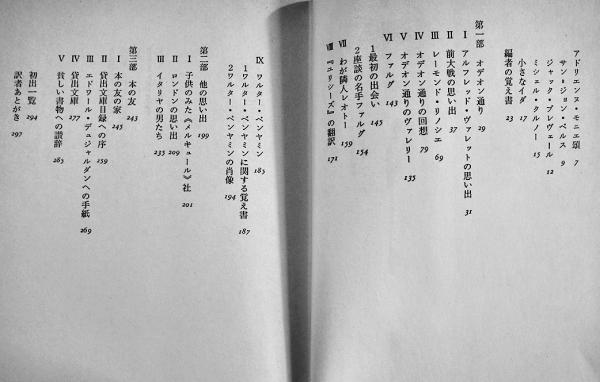 アドリエンヌ・モニエ頌 7
サン＝ジョン・ペルス 9
ジャック・プレヴェール 12
ミシェル・クルノー 15
小さなイダ 17
編者の覚え書 23
第一部 オデオン通り 29
Ⅰ アルフレッド・ヴァレットの思い出 31
Ⅱ 前大戦の思い出 37
Ⅲ レーモンド・リノシエ 69
Ⅳ オデオン通りの回想 79
Ⅴ オデオン通りのヴァレリー 135
Ⅵ ファルグ 143
1 最初の出会い 145
2 座談の名手ファルグ 154
Ⅶ わが隣人レオトー 159
Ⅷ 『ユリシーズ』の翻訳 171
Ⅸ ワルター・ベンヤミン 185
1 ワルター・ベンヤミンに関する覚え書 187
2 ワルター・ベンヤミンの肖像 194
第二部 他の思い出 199
Ⅰ 子供のみた《メルキュール》社 201
Ⅱ ロンドンの思い出 209
Ⅲ イタリヤの男たち 235
第三部 本の友 243
Ⅰ 本の友の家 245
Ⅱ 貸出文庫目録への序 259
Ⅲ エドワール・デュジャルダンへの手紙 269
Ⅳ 貸出文庫 277
Ⅴ 貧しい書物への讃辞 285
初出一覧 294
訳者あとがき 297